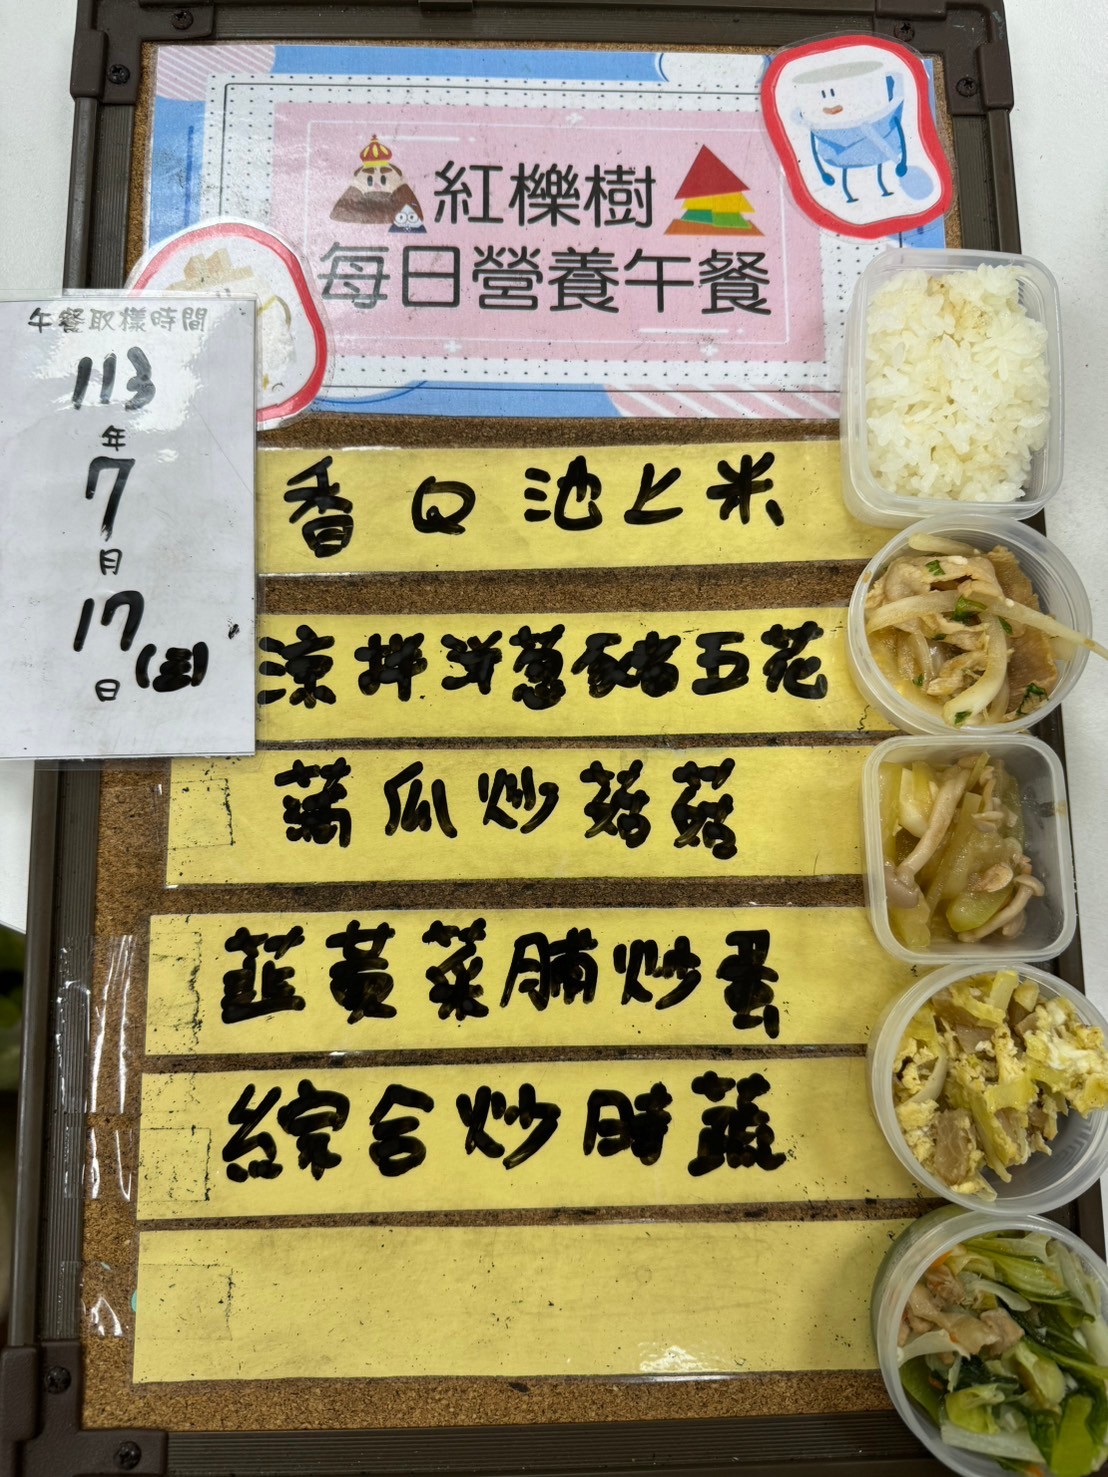 紅櫟樹
每日營養午餐
午餐取樣時間
113
年
7
月
17
日
(三)
香Q池上米
涼拌洋蔥豬五花
蒲瓜炒菇菇
韮黃菜脯炒蛋
綜合炒時蔬